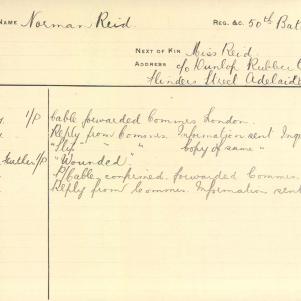 NAME Norman Reid REG. &C. 50th Bat
NEXT OF KIN Miss Reid
ADDRESS c/o Dunlop Rubber C
Flinders Street Adelaide
1/p Cable forwarded Commrs London.
Reply from Commrs. Information sent Inq
"Slip" " " Copy of same "
1/p "Wounded"
Cable confirmed. forwarded Commrs
Reply from Commrs. Information sent